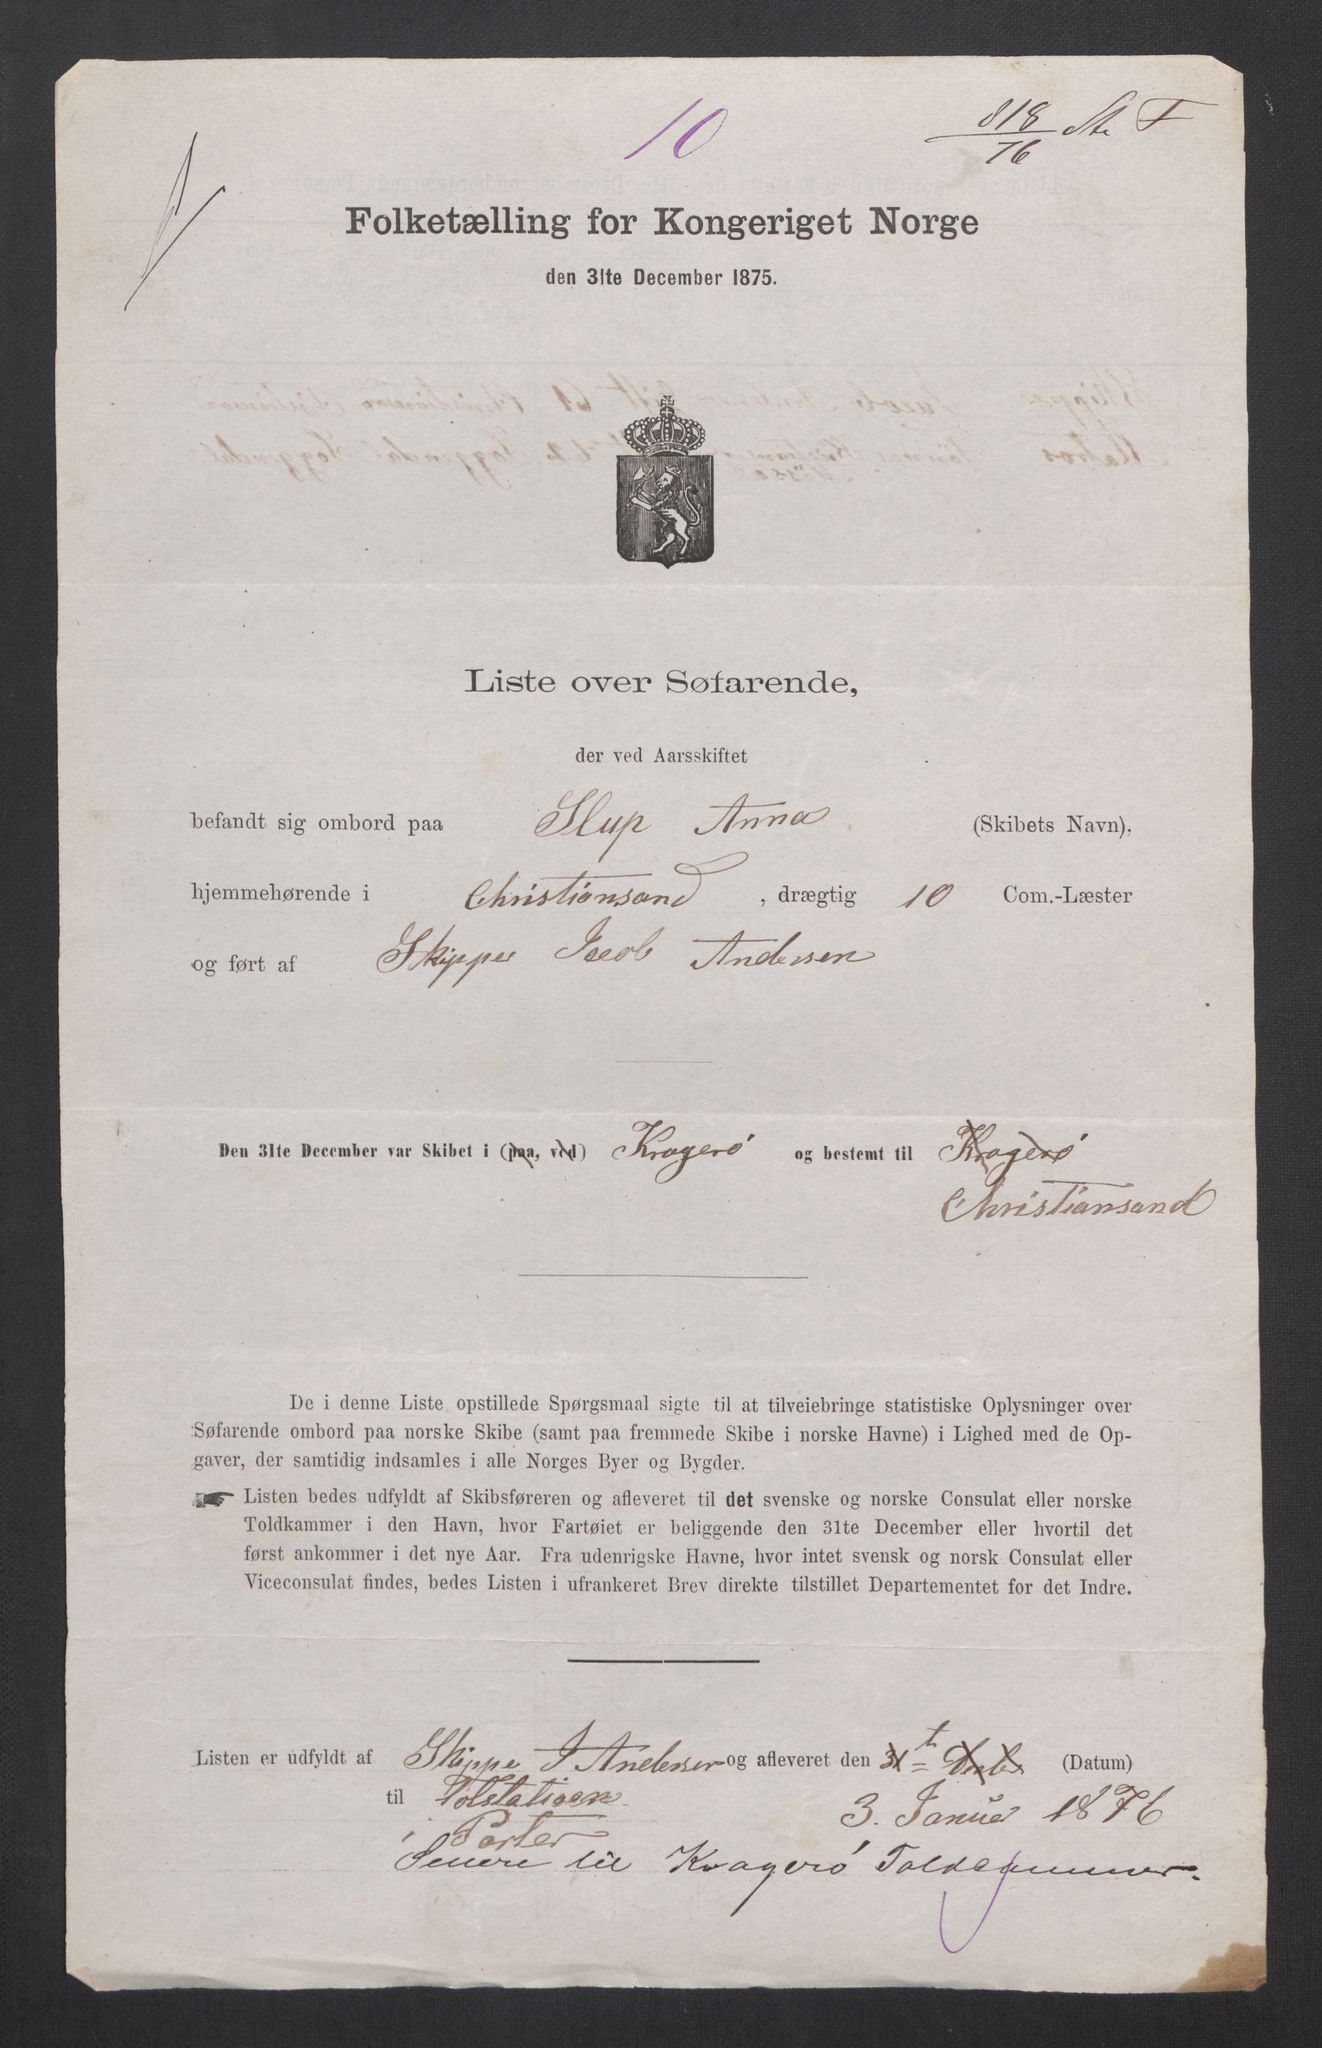 10
818/76 St. F
Folketælling for Kongeriget Norge
den 31te December 1875.
Liste over Søfarende,
der ved Aarsskiftet
befandt sig ombord paa Slup Anna (Skibets Navn),
hjemmehørende i Christiansand, drægtig 10 Com.-Læster
og ført af Skipper Jacob Andersen
Den 31te December var Skibet i (paa, ved) Kragerö og bestemt til Kragerö
Christiansand
De i denne Liste opstillede Spørgsmaal sigte til at tilveiebringe statistiske Oplysninger over
Søfarende ombord paa norske Skibe (samt paa fremmede Skibe i norske Havne) i Lighed med de Op-
gaver, der samtidig indsamles i alle Norges Byer og Bygder.
Listen bedes udfyldt af Skibsføreren og afleveret til det svenske og norske Consulat eller norske
Toldkammer i den Havn, hvor Fartøiet er beliggende den 31te December eller hvortil det
først ankommer i det nye Aar. Fra udenrigske Havne, hvor intet svensk og norsk Consulat eller
Viceconsulat findes, bedes Listen i ufrankeret Brev direkte tilstillet Departementet for det Indre.
Listen er udfyldt af Skippe J Andersen og afleveret den 31t (Datum)
til Tolstationen 3. Januar 1876
i Porter
Senere til Kragerö Toldkammer.